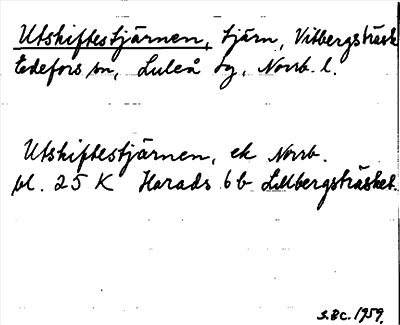 Utskiftestjärnen, tjärn, Vitbergsträsk
Edefors sn, Luleå sg, Norrb. l.
Utskiftestjärnen, ek Norrb.
bl. 25 K Harads 6b Lillbergsträsket.
S.B.C. 1959.